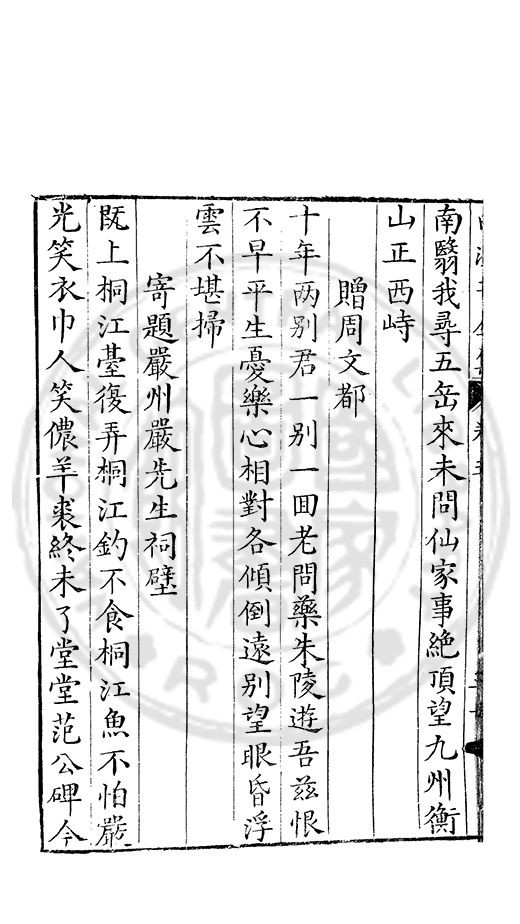 南翳我尋五岳來未問仙家事絶頂望九州衡
山正西峙
贈周文都
十年两别君一别一囬老問藥朱陵遊吾兹恨
不早平生憂樂心相對各傾倒遠别望眼昏浮
雲不堪掃
寄題嚴州嚴先生祠壁
旣上桐江臺復弄桐江釣不食桐江魚不怕嚴
光笑衣巾人笑儂羊裘終未了堂堂范公碑今